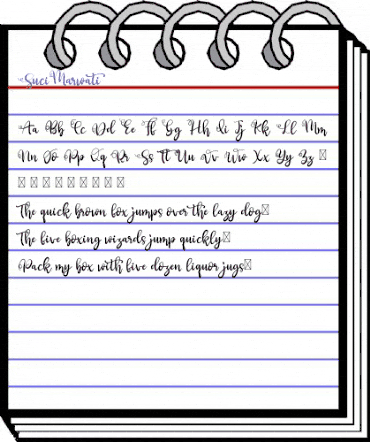 Suci Marwati
Aa Bb Cc Dd Ee Ff Gg Hh Ii Jj Kk Ll Mm
Nn Oo Pp Qq Rr Ss Tt Uu Vv Ww Xx Yy Zz □
□ □ □ □ □ □ □ □ □
The quick brown fox jumps over the lazy dog□
The five boxing wizards jump quickly□
Pack my box with five dozen liquor jugs□